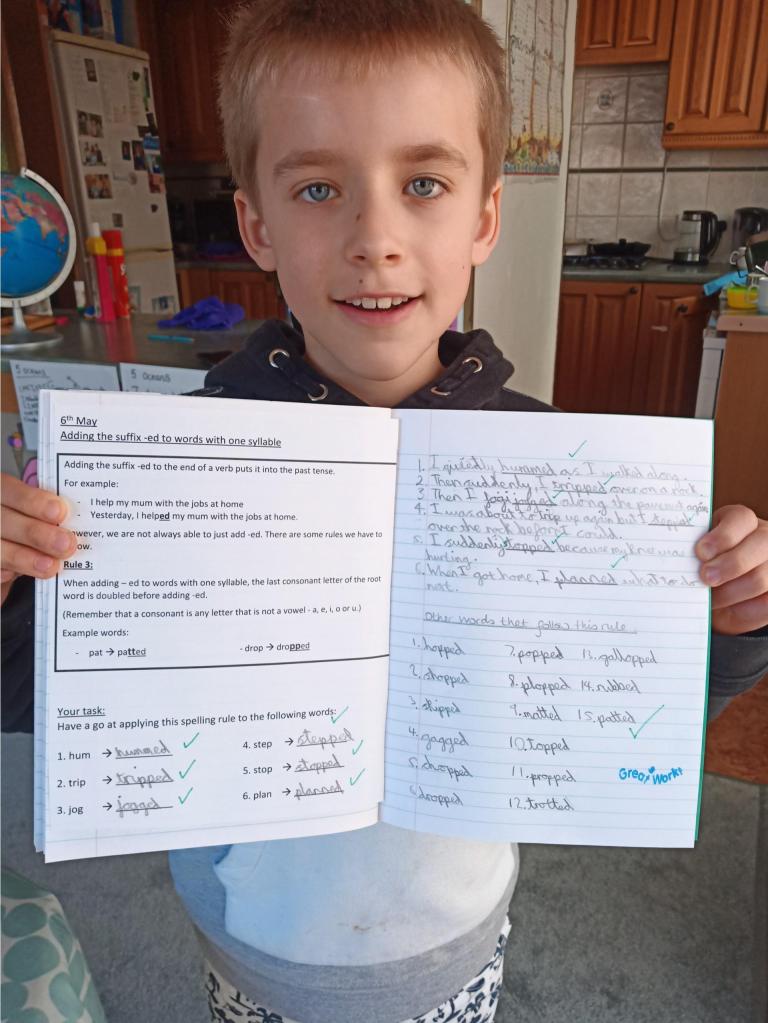 5 OCEANS
5 OCEANS
6th May
Adding the suffix -ed to words with one syllable
Adding the suffix -ed to the end of a verb puts it into the past tense.
For example:
- I help my mum with the jobs at home
- Yesterday, I helped my mum with the jobs at home.
owever, we are not always able to just add -ed. There are some rules we have to
ow.
Rule 3:
When adding – ed to words with one syllable, the last consonant letter of the root
word is doubled before adding -ed.
(Remember that a consonant is any letter that is not a vowel - a, e, i, o or u.)
Example words:
- pat → patted
- drop → dropped
Your task:
Have a go at applying this spelling rule to the following words:
1. hum → hummed
2. trip → tripped
3. jog → jogged
4. step → stepped
5. stop → stopped
6. plan → planned
1. I quietly hummed as I walked along.
2. Then suddenly, I tripped over on a rock.
3 Then I jogged along the pavement again
4. I was about to trip up again but I stepped
over the rock before I could.
5. I suddenly stopped because my knee was
hurting.
6. When I got home, I planned what to do
next.
Other words that follow this rule
1. hopped
2. shopped
3. skipped
4. gagged
5. chopped
6. dropped
7. popped
8. plopped
9. matted
10. topped
11. propped
12. trotted
13. gallopped
14. rubbed
15. patted
Great Work!